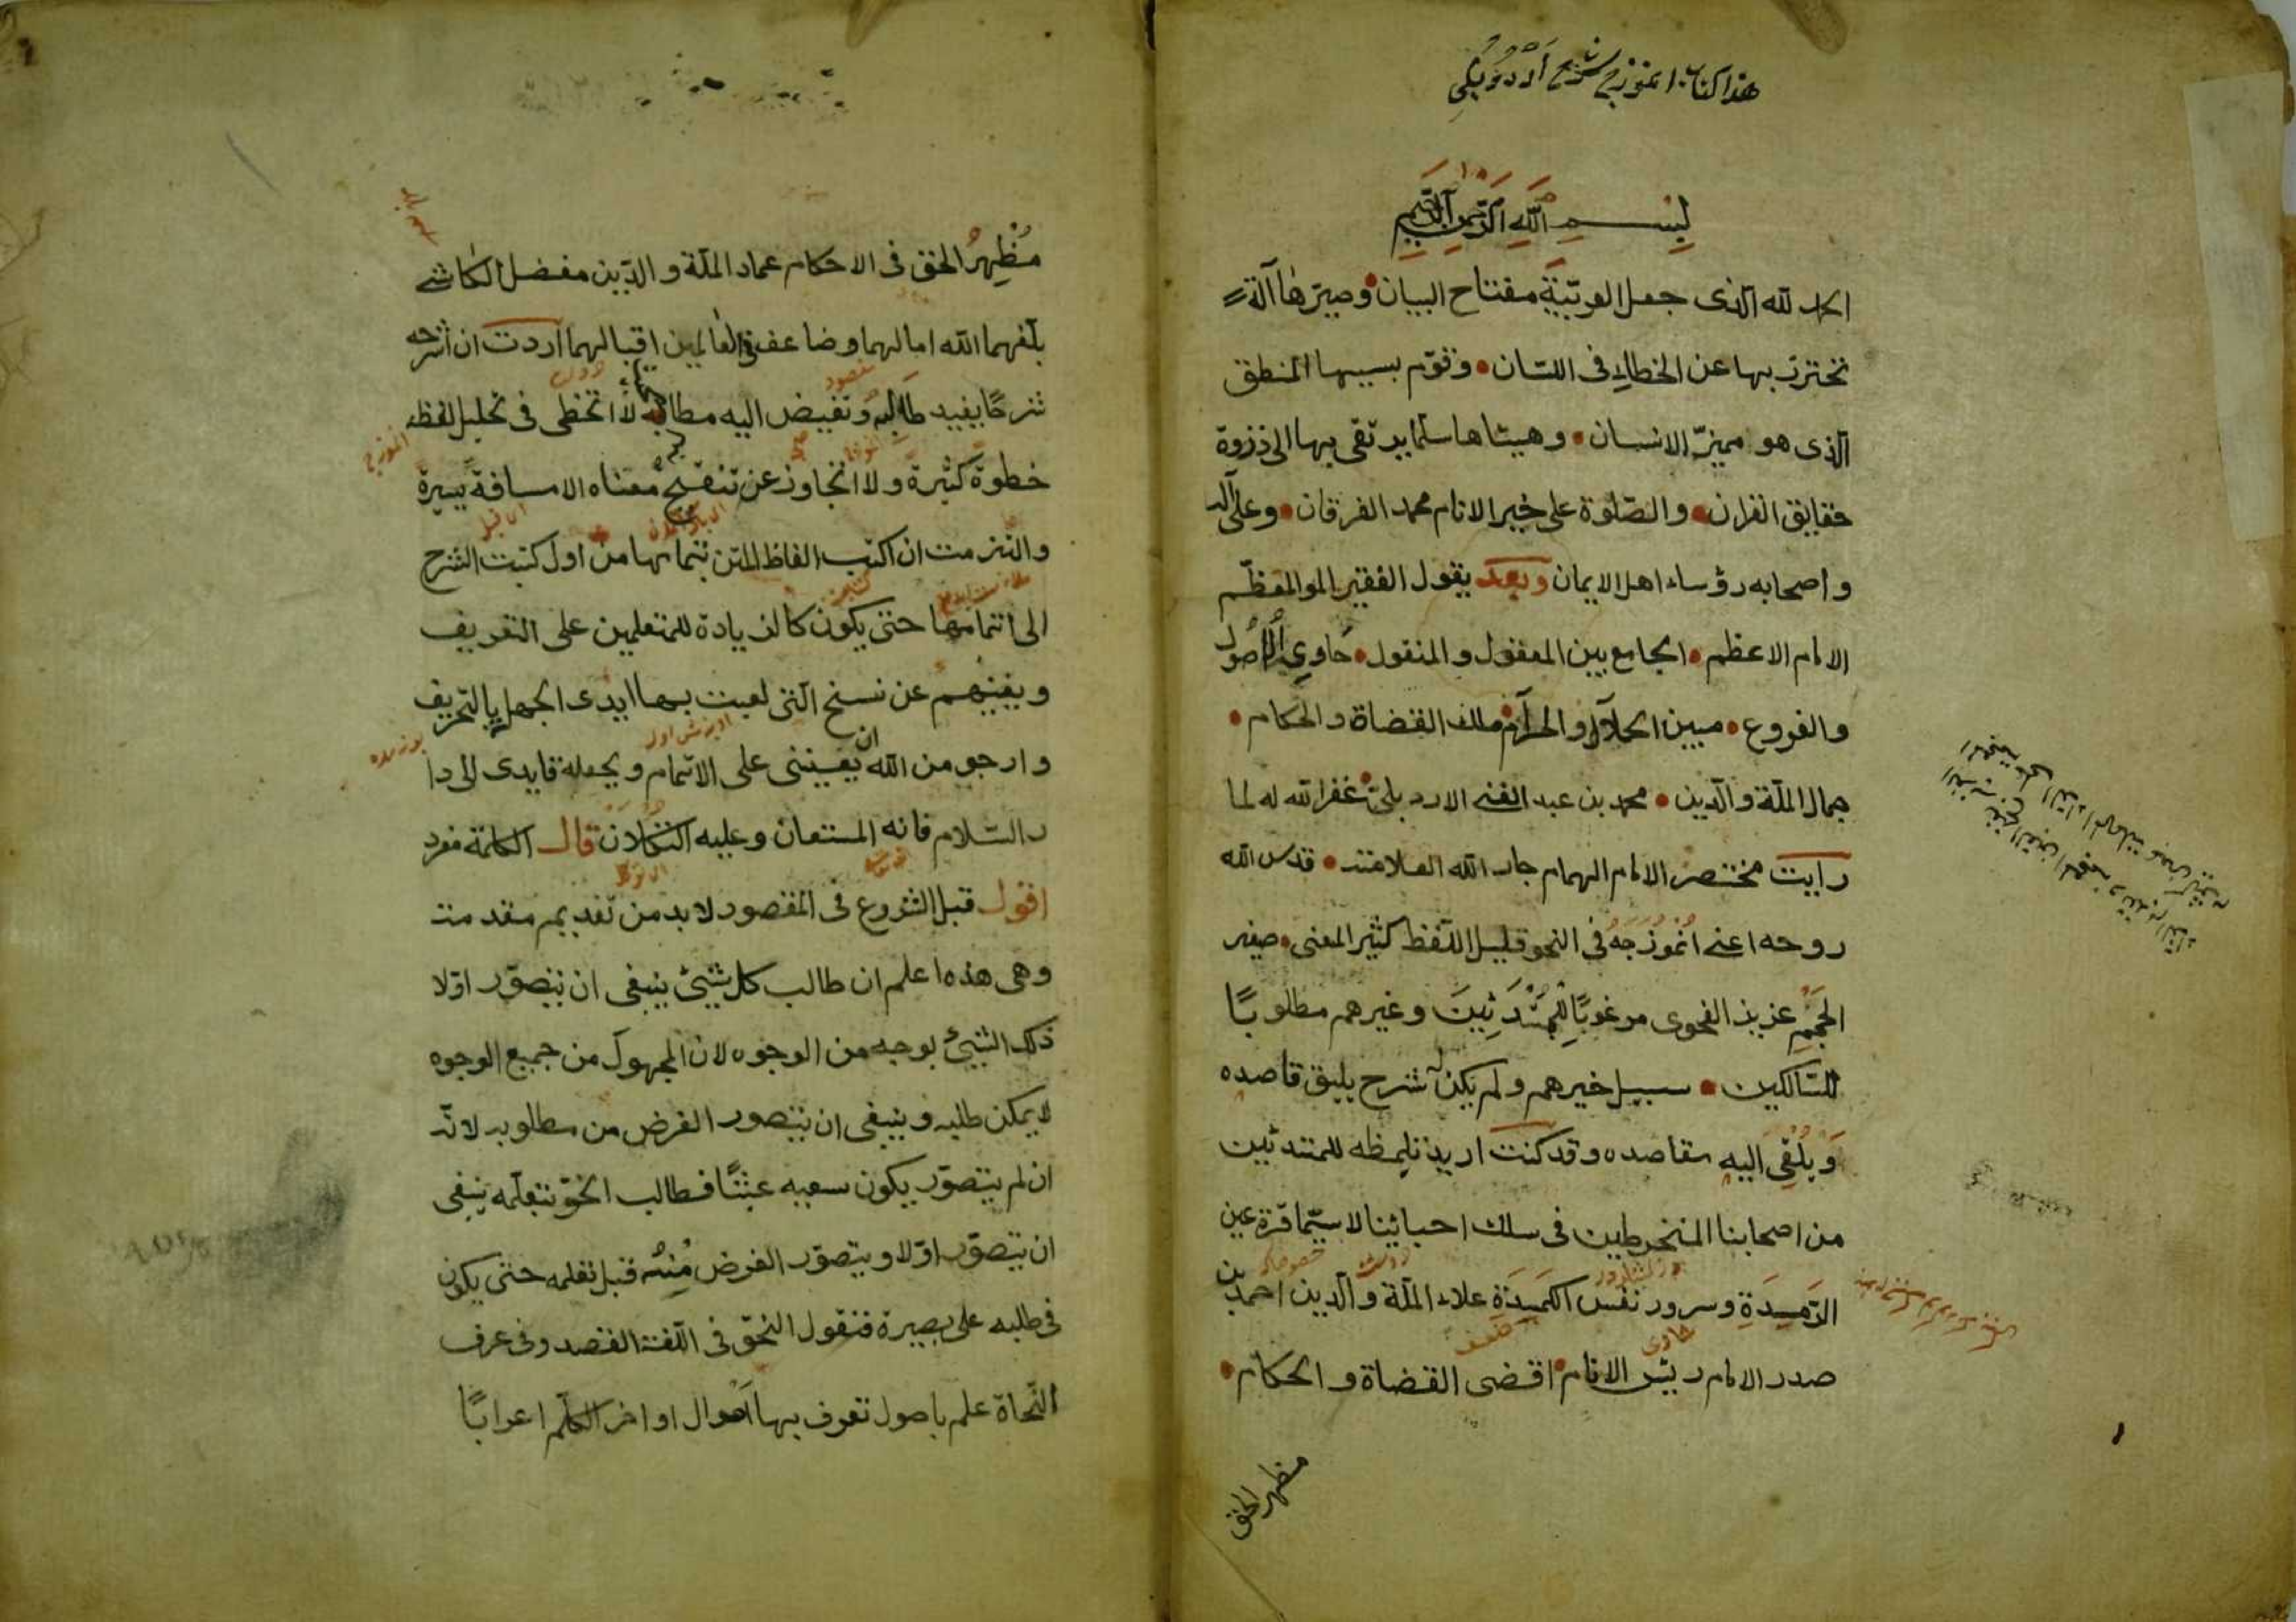 هذا كتاب انموزج شرح اردوبيلي
بسم الله الرحمن الرحيم
الحمد لله الذى جعل العربية مفتاح البيان وصيرها آلة
تحترز بها عن الخطاء فى اللسان وتقوم بسببها المنطق
الذى هو مميز الانسان وهيئاها سلما يرتقى بها الى ذزوة
حقايق القران والصلوة على خير الانام محمد الفرقان وعلى اله
واصحابه رؤساء اهل الايمان وبعد يقول الفقير المولى المعظم
الامام الاعظم الجامع بين المعقول والمنقول حاوي الاصول
والفروع مبين الحلال والحرام ملك القضاة والحكام
جمال الملة والدين محمد بن عبد الغنى الاردبلى غفر الله له لما
رايت مختصر الامام الهمام جار الله العلامة قدس الله
روحه اعنى انموزجه في النحو قليل اللفظ كثير المعنى صغير
الحجم عزيز الفحوى مرغوبا للمبتدئين وغيرهم مطلوبا
للسالكين سبيل خيرهم ولم يكن له شرح يليق قاصده
ويلقي اليه مقاصده وقد كنت اريد تليمظه للمبتدئين
من اصحابنا المنخرطين فى سلك احبائنا لا سيما قرة عين
الرميدة وسرور نفس الكميدة علاء الملة والدين احمد بن
صدر الامام رئيس الانام اقضى القضاة والحكام
مظهر الحق
مظهر الحق فى الاحكام عماد الملة والدين مفضل الكاشى
بلغهما الله امالهما وضاعف فى العالمين اقبالهما اردت ان اشرحه
شرحا يفيد طالبه وتفيض اليه مطالبه لا اتخطى فى تحليل لفظه
انموزج
خطوة كثيرة ولا اتجاوز عن تنقيح معناه الا مسافة يسيرة
والتزمت ان اكتب الفاظ المتن بتمامها من اول كتبت الشرح
الى اتمامها حتى يكون كالزيادة للمتعلمين على التعريف
ويغنيهم عن نسخ التى لعبت بها ايدى الجهل بالتحريف
وارجو من الله ان يعيننى على الاتمام ويجعله قايدى الى دا
ر السلام فانه المستعان وعليه التكلان قال الكلمة مفرد
اقول قبل الشروع فى المقصور لا بد من تقديم مقدمة
وهى هذه اعلم ان طالب كل شيئ ينبغى ان يتصور اولا
ذلك الشيئ بوجه من الوجوه لان المجهول من جميع الوجوه
لا يمكن طلبه وينبغى ان يتصور الغرض من مطلوبه لانه
ان لم يتصور يكون سعيه عبثا فطالب النحو بتعلمه ينبغى
ان يتصور اولا ويتصور الغرض منه قبل تعلمه حتى يكون
فى طلبه على بصيرة فنقول النحو فى اللغة القصد وفى عرف
النحاة علم باصول تعرف بها احوال اواخر الكلم اعرابا